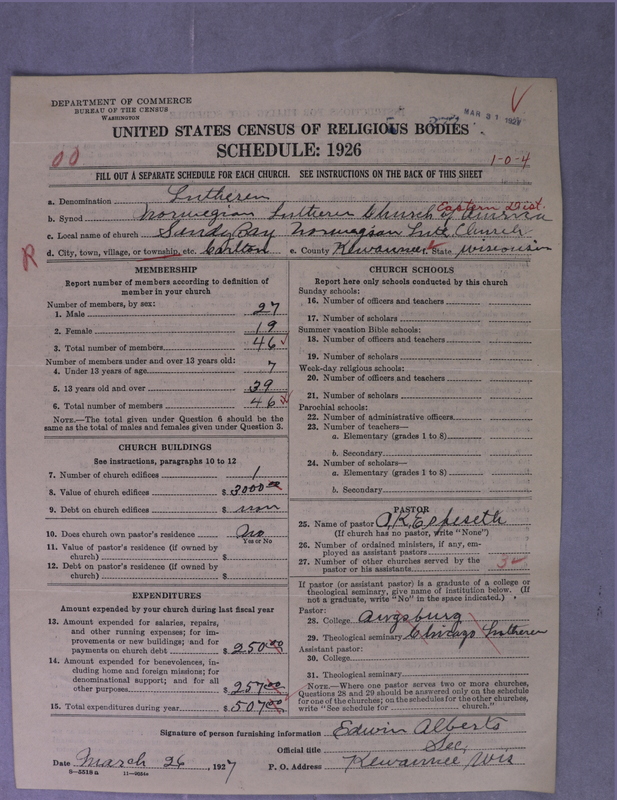 DEPARTMENT OF COMMERCE
BUREAU OF THE CENSUS
WASHINGTON
MAR 31 1927
UNITED STATES CENSUS OF RELIGIOUS BODIES
SCHEDULE: 1926
00
1-0-4
FILL OUT A SEPARATE SCHEDULE FOR EACH CHURCH. SEE INSTRUCTIONS ON THE BACK OF THIS SHEET
a. Denomination Lutheren
b. Synod Norwegian Lutheren Church of America Eastern Dist.
c. Local name of church Sandy Bay Norwegian Luth Church
R
d. City, town, village, or township, etc. Carlton e. County Kewaunee State Wisconsin
MEMBERSHIP
Report number of members according to definition of
member in your church
Number of members, by sex:
1. Male 27
2. Female 19
3. Total number of members 46
Number of members under and over 13 years old:
4. Under 13 years of age 7
5. 13 years old and over 39
6. Total number of members 46
NOTE.—The total given under Question 6 should be the
same as the total of males and females given under Question 3.
CHURCH BUILDINGS
See instructions, paragraphs 10 to 12
7. Number of church edifices 1
8. Value of church edifices $ 3000 00
9. Debt on church edifices $ non
10. Does church own pastor's residence No
Yes or No
11. Value of pastor's residence (if owned by
church) $
12. Debt on pastor's residence (if owned by
church) $
EXPENDITURES
Amount expended by your church during last fiscal year
13. Amount expended for salaries, repairs,
and other running expenses; for im-
provements or new buildings; and for
payments on church debt $ 250 00
14. Amount expended for benevolences, in-
cluding home and foreign missions; for
denominational support; and for all
other purposes $ 257 00
15. Total expenditures during year $ 507 00
CHURCH SCHOOLS
Report here only schools conducted by this church
Sunday schools:
16. Number of officers and teachers
17. Number of scholars
Summer vacation Bible schools:
18. Number of officers and teachers
19. Number of scholars
Week-day religious schools:
20. Number of officers and teachers
21. Number of scholars
Parochial schools:
22. Number of administrative officers
23. Number of teachers—
a. Elementary (grades 1 to 8)
b. Secondary
24. Number of scholars—
a. Elementary (grades 1 to 8)
b. Secondary
PASTOR
25. Name of pastor O.K. Espeseth
(If church has no pastor, write "None")
26. Number of ordained ministers, if any, em-
ployed as assistant pastors
27. Number of other churches served by the
pastor or his assistants 3
If pastor (or assistant pastor) is a graduate of a college or
theological seminary, give name of institution below. (If
not a graduate, write "No" in the space indicated.)
Pastor:
28. College Augsburg
29. Theological seminary Chicago Lutheren
Assistant pastor:
30. College
31. Theological seminary
NOTE.—Where one pastor serves two or more churches,
Questions 28 and 29 should be answered only on the schedule
for one of the churches; on the schedules for the other churches,
write "See schedule for church."
Signature of person furnishing information Edwin Alberts
Official title Sec.
Date March 26, 1927 P. O. Address Kewaunee Wis
8—5518 a